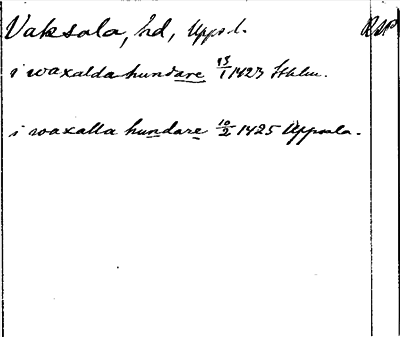 Vaksala, hd, Upps l. RAP
i waxalda hundare 13/1 1423 Sthlm.
i waxalla hundare 10/2 1425 Uppsala.